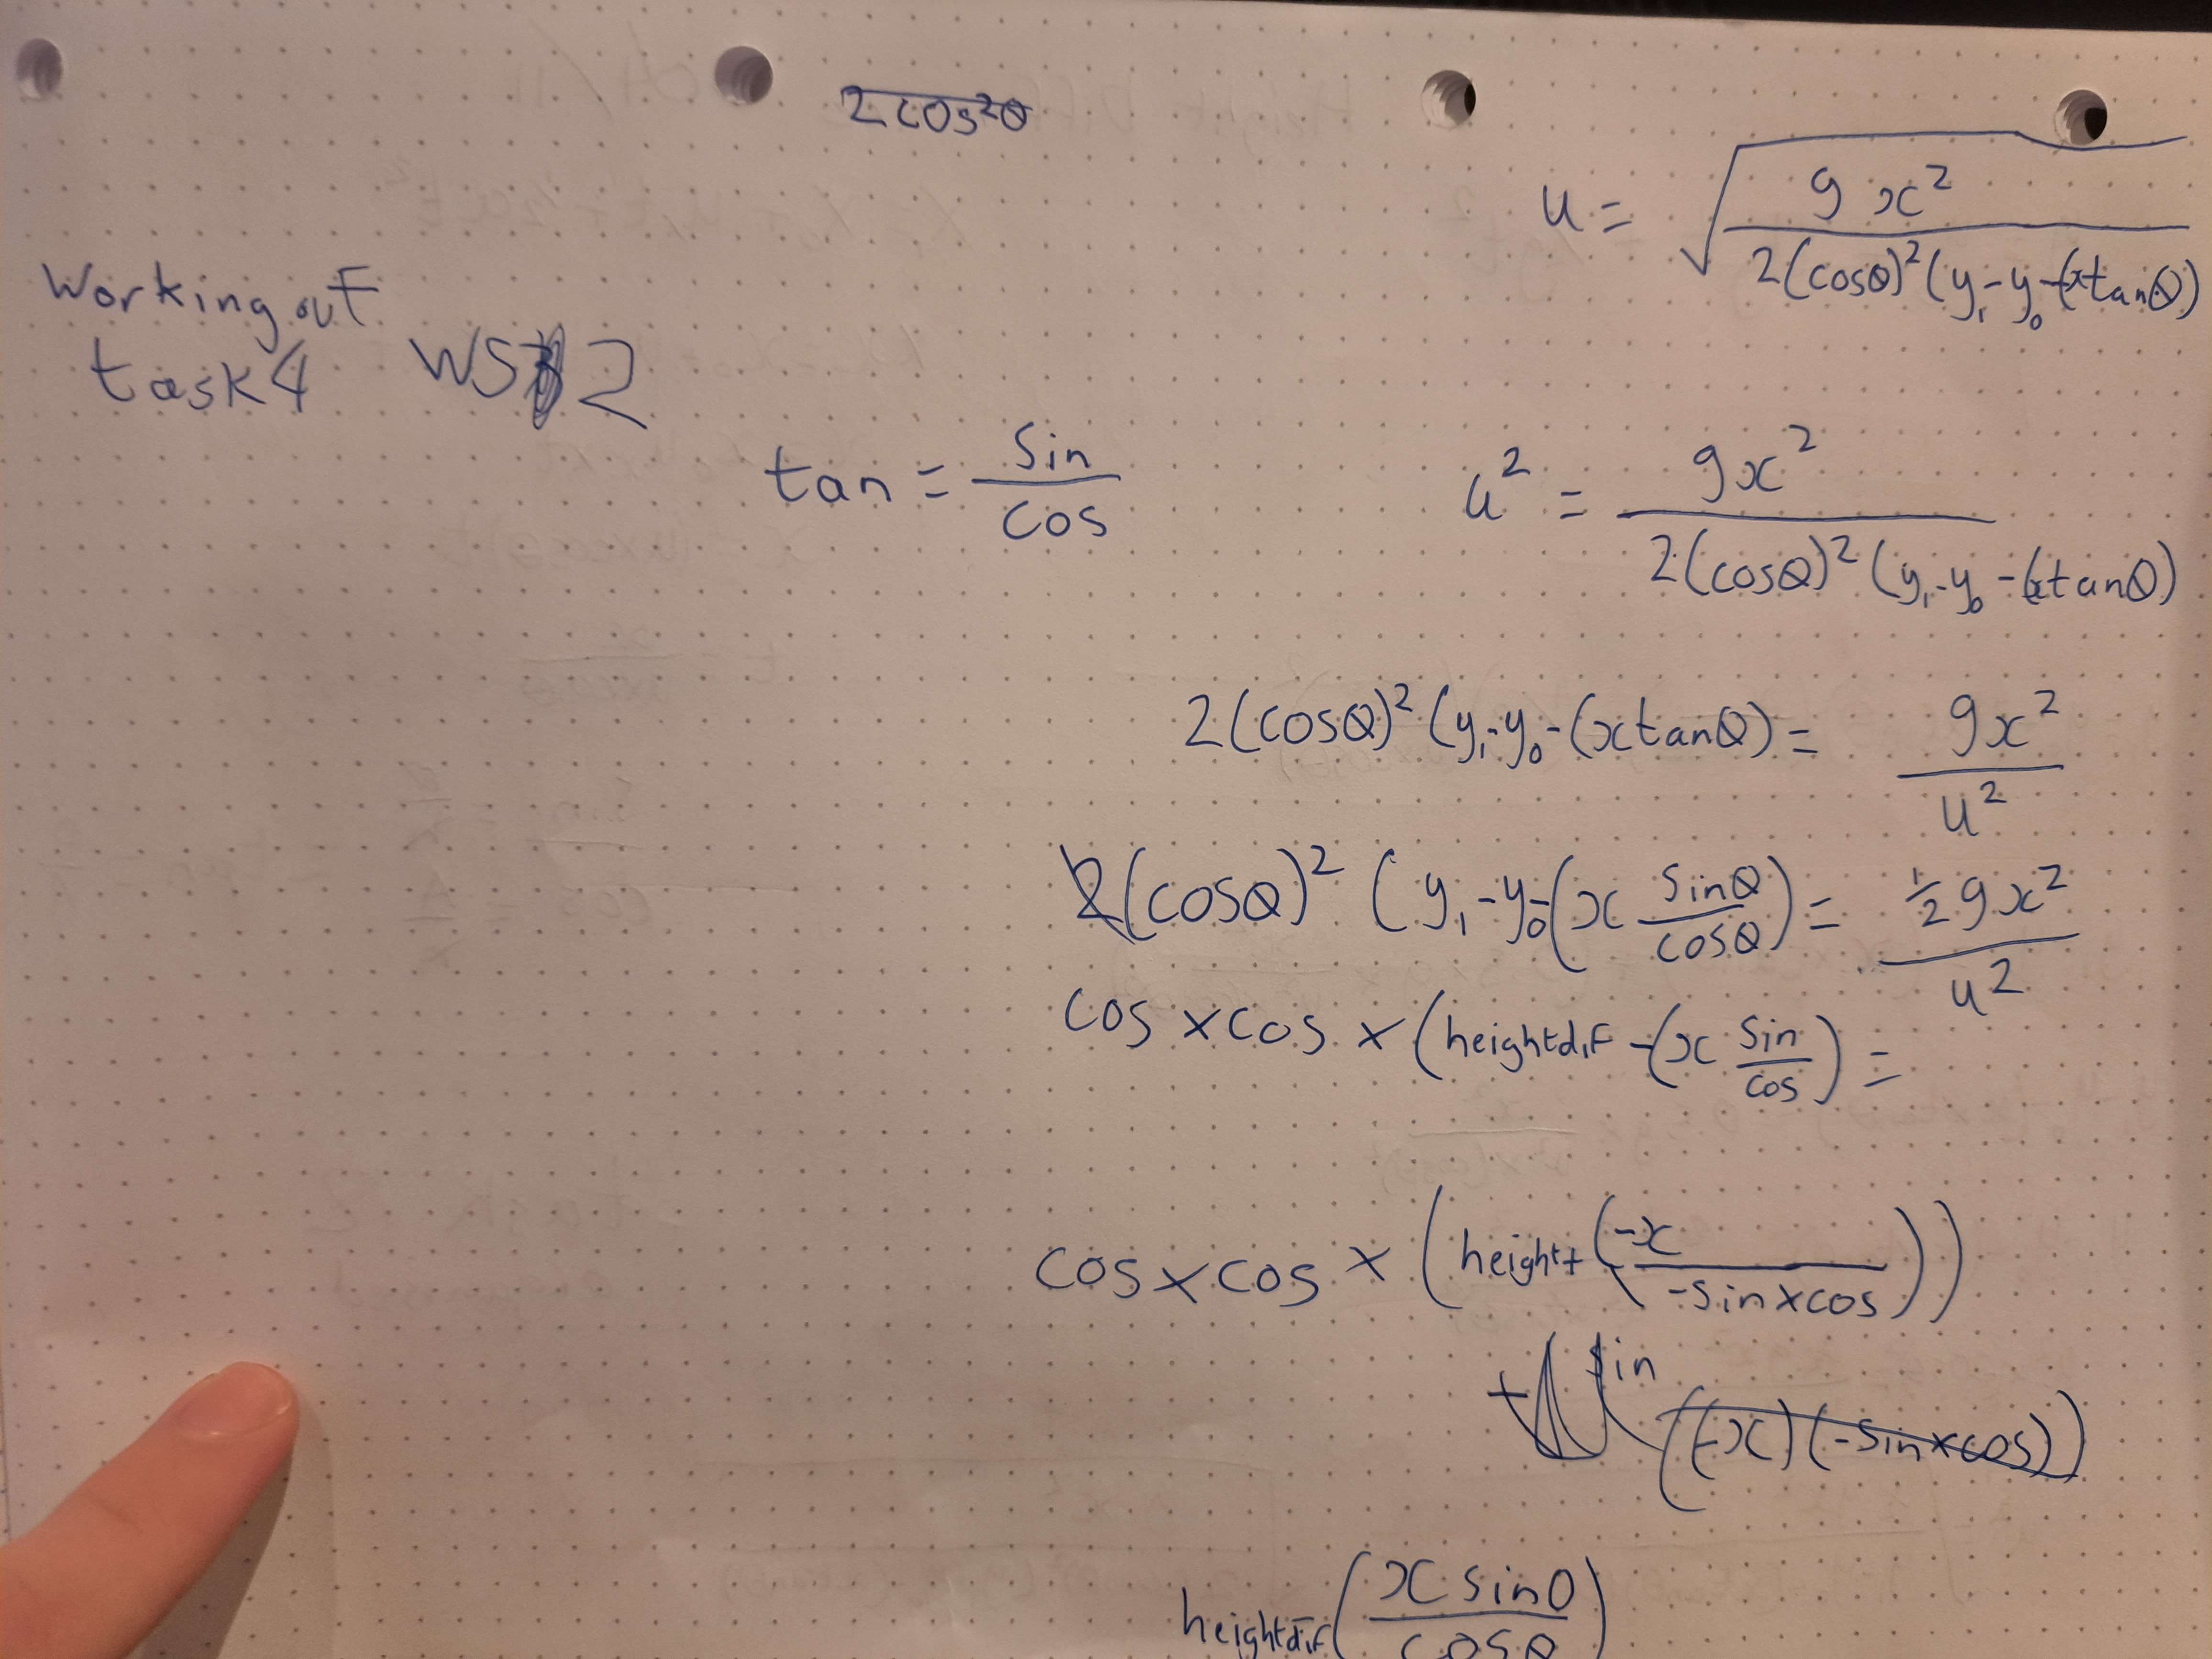 2cos²θ
u = √(gx² / 2(cosθ)²(y₁-y₀-(xtanθ))
Working out
task 4 WS 2
tan = sin / cos
u² = gx² / 2(cosθ)²(y₁-y₀-(xtanθ)
2(cosθ)²(y₁-y₀-(xtanθ) = gx² / u²
2(cosθ)² (y₁-y₀-(x sinθ / cosθ) = ½gx² / u²
cos × cos × (heightdif -(x sin / cos) =
cos × cos × (height + (-x / -sin×cos))
+ sin
((-x)(-sin×cos))
heightdif - (x sinθ / cosθ)